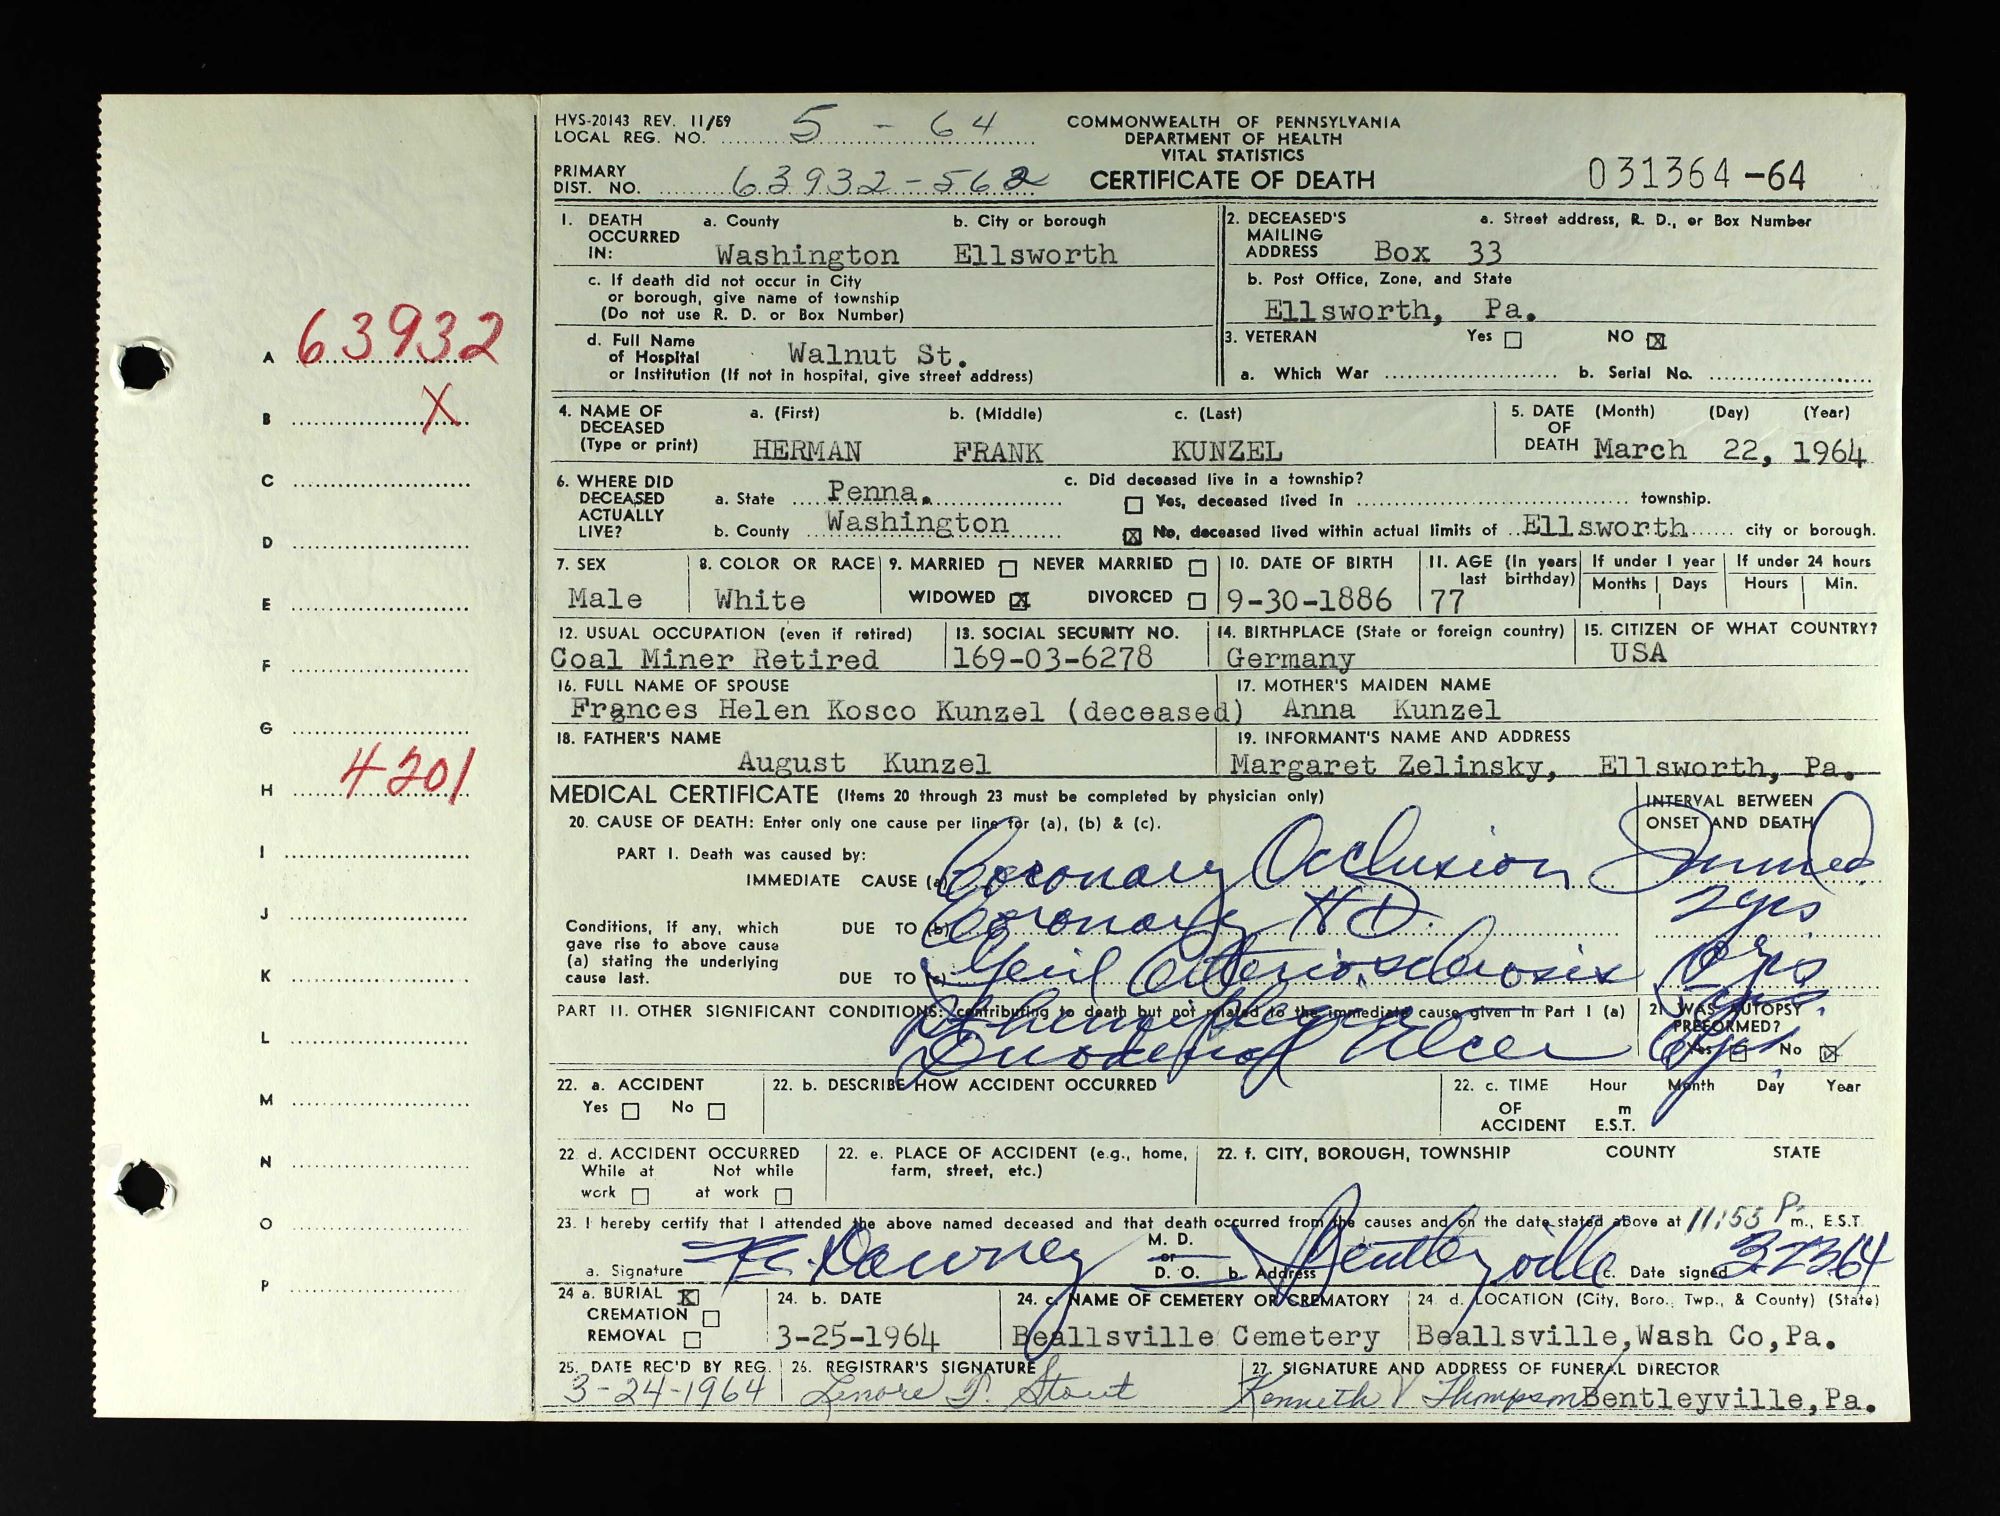 HVS-20143 REV. 11/59
LOCAL REG. NO. 5 - 64
COMMONWEALTH OF PENNSYLVANIA
DEPARTMENT OF HEALTH
VITAL STATISTICS
PRIMARY
DIST. NO. 63932-562
CERTIFICATE OF DEATH
031364-64
1. DEATH OCCURRED IN: a. County b. City or borough
Washington Ellsworth
c. If death did not occur in City
or borough, give name of township
(Do not use R. D. or Box Number)
d. Full Name
of Hospital Walnut St.
or Institution (If not in hospital, give street address)
2. DECEASED'S MAILING ADDRESS a. Street address, R. D., or Box Number
Box 33
b. Post Office, Zone, and State
Ellsworth, Pa.
3. VETERAN Yes ☐ NO ☒
a. Which War b. Serial No.
4. NAME OF DECEASED (Type or print) a. (First) b. (Middle) c. (Last)
HERMAN FRANK KUNZEL
5. DATE OF DEATH (Month) (Day) (Year)
March 22, 1964
6. WHERE DID DECEASED ACTUALLY LIVE?
a. State Penna.
b. County Washington
c. Did deceased live in a township?
☐ Yes, deceased lived in township.
☒ No, deceased lived within actual limits of Ellsworth city or borough.
7. SEX
Male
8. COLOR OR RACE
White
9. MARRIED ☐ NEVER MARRIED ☐
WIDOWED ☒ DIVORCED ☐
10. DATE OF BIRTH
9-30-1886
11. AGE (In years last birthday)
77
If under 1 year
Months Days
If under 24 hours
Hours Min.
12. USUAL OCCUPATION (even if retired)
Coal Miner Retired
13. SOCIAL SECURITY NO.
169-03-6278
14. BIRTHPLACE (State or foreign country)
Germany
15. CITIZEN OF WHAT COUNTRY?
USA
16. FULL NAME OF SPOUSE
Frances Helen Kosco Kunzel (deceased)
17. MOTHER'S MAIDEN NAME
Anna Kunzel
18. FATHER'S NAME
August Kunzel
19. INFORMANT'S NAME AND ADDRESS
Margaret Zelinsky, Ellsworth, Pa.
MEDICAL CERTIFICATE (Items 20 through 23 must be completed by physician only)
INTERVAL BETWEEN
ONSET AND DEATH
20. CAUSE OF DEATH: Enter only one cause per line for (a), (b) & (c).
PART I. Death was caused by:
IMMEDIATE CAUSE (a) Coronary Occlusion Immed.
Conditions, if any, which
gave rise to above cause
(a) stating the underlying
cause last.
DUE TO (b) Coronary H D. 2 yrs
DUE TO (c) Genl Arteriosclerosis
PART II. OTHER SIGNIFICANT CONDITIONS: contributing to death but not related to the immediate cause given in Part I (a)
hemiplegia
Duodenal Ulcer
21. WAS AUTOPSY
PREFORMED?
Yes ☐ No ☒
22. a. ACCIDENT
Yes ☐ No ☐
22. b. DESCRIBE HOW ACCIDENT OCCURRED
22. c. TIME Hour Month Day Year
OF m
ACCIDENT E.S.T.
22 d. ACCIDENT OCCURRED
While at Not while
work ☐ at work ☐
22. e. PLACE OF ACCIDENT (e.g., home,
farm, street, etc.)
22. f. CITY, BOROUGH, TOWNSHIP COUNTY STATE
23. I hereby certify that I attended the above named deceased and that death occurred from the causes and on the date stated above at 11:55 P. m., E.S.T.
a. Signature Downey M. D. or D. O. b. Address Bentleyville c. Date signed 3-23-64
24 a. BURIAL ☒
CREMATION ☐
REMOVAL ☐
24. b. DATE
3-25-1964
24. c. NAME OF CEMETERY OR CREMATORY
Beallsville Cemetery
24 d. LOCATION (City, Boro., Twp., & County) (State)
Beallsville, Wash Co, Pa.
25. DATE REC'D BY REG.
3-24-1964
26. REGISTRAR'S SIGNATURE
Lenore P. Stout
27. SIGNATURE AND ADDRESS OF FUNERAL DIRECTOR
Kenneth V Thompson Bentleyville, Pa.
A 63932
B X
C
D
E
F
G
H 4201
I
J
K
L
M
N
O
P